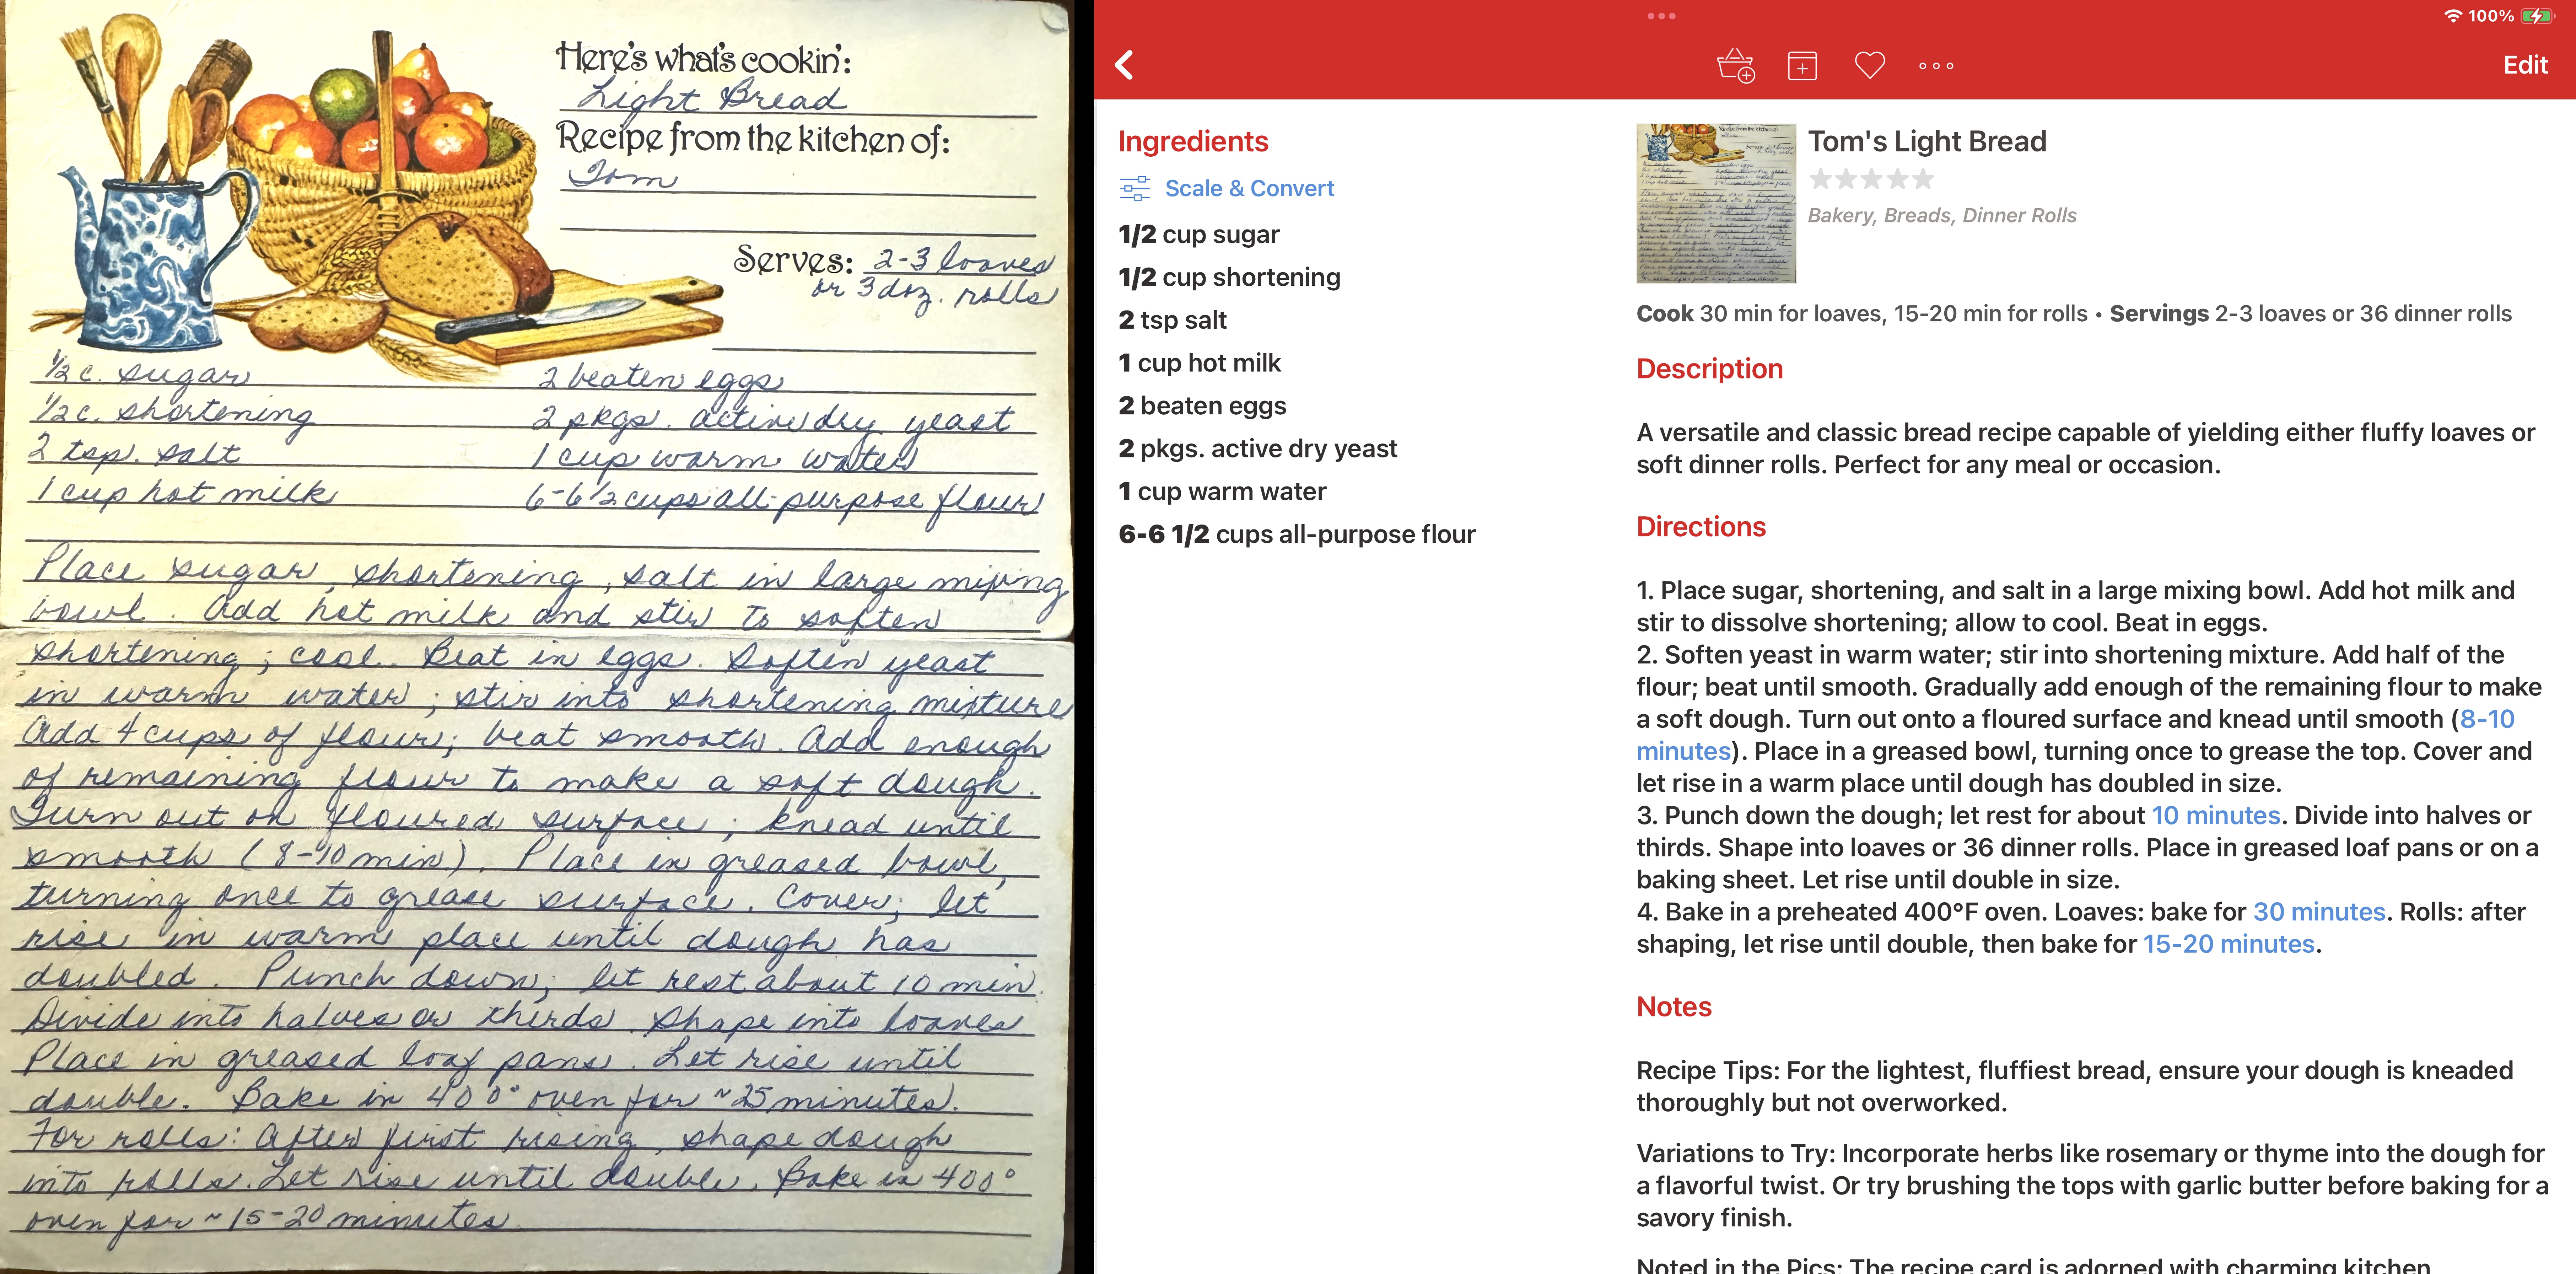 Here's what's cookin':
Light Bread
Recipe from the kitchen of:
Tom
Serves: 2-3 loaves
or 3 doz. rolls
1/2 c. sugar
1/2 c. shortening
2 tsp. salt
1 cup hot milk
2 beaten eggs
2 pkgs. active dry yeast
1 cup warm water
6-6 1/2 cups all-purpose flour
Place sugar, shortening, salt in large mixing
bowl. Add hot milk and stir to soften
shortening; cool. Beat in eggs. Soften yeast
in warm water; stir into shortening mixture
Add 4 cups of flour; beat smooth. Add enough
of remaining flour to make a soft dough.
Turn out on floured surface; knead until
smooth (8-10 min). Place in greased bowl,
turning once to grease surface. Cover; let
rise in warm place until dough has
doubled. Punch down; let rest about 10 min.
Divide into halves or thirds. Shape into loaves
Place in greased loaf pans. Let rise until
double. Bake in 400° oven for ~25 minutes.
For rolls: After first rising, shape dough
into rolls. Let rise until double. Bake in 400°
oven for ~15-20 minutes
100%
Edit
Ingredients
Scale & Convert
1/2 cup sugar
1/2 cup shortening
2 tsp salt
1 cup hot milk
2 beaten eggs
2 pkgs. active dry yeast
1 cup warm water
6-6 1/2 cups all-purpose flour
Tom's Light Bread
Bakery, Breads, Dinner Rolls
Cook 30 min for loaves, 15-20 min for rolls • Servings 2-3 loaves or 36 dinner rolls
Description
A versatile and classic bread recipe capable of yielding either fluffy loaves or
soft dinner rolls. Perfect for any meal or occasion.
Directions
1. Place sugar, shortening, and salt in a large mixing bowl. Add hot milk and
stir to dissolve shortening; allow to cool. Beat in eggs.
2. Soften yeast in warm water; stir into shortening mixture. Add half of the
flour; beat until smooth. Gradually add enough of the remaining flour to make
a soft dough. Turn out onto a floured surface and knead until smooth (8-10
minutes). Place in a greased bowl, turning once to grease the top. Cover and
let rise in a warm place until dough has doubled in size.
3. Punch down the dough; let rest for about 10 minutes. Divide into halves or
thirds. Shape into loaves or 36 dinner rolls. Place in greased loaf pans or on a
baking sheet. Let rise until double in size.
4. Bake in a preheated 400°F oven. Loaves: bake for 30 minutes. Rolls: after
shaping, let rise until double, then bake for 15-20 minutes.
Notes
Recipe Tips: For the lightest, fluffiest bread, ensure your dough is kneaded
thoroughly but not overworked.
Variations to Try: Incorporate herbs like rosemary or thyme into the dough for
a flavorful twist. Or try brushing the tops with garlic butter before baking for a
savory finish.
Noted in the Pics: The recipe card is adorned with charming kitchen